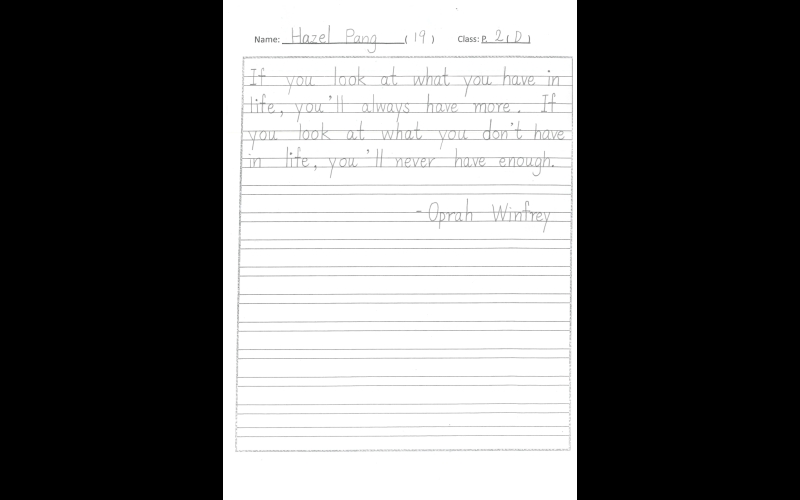 Name: Hazel Pang (19) Class: P. 2(D)
If you look at what you have in
life, you'll always have more. If
you look at what you don't have
in life, you'll never have enough.
- Oprah Winfrey